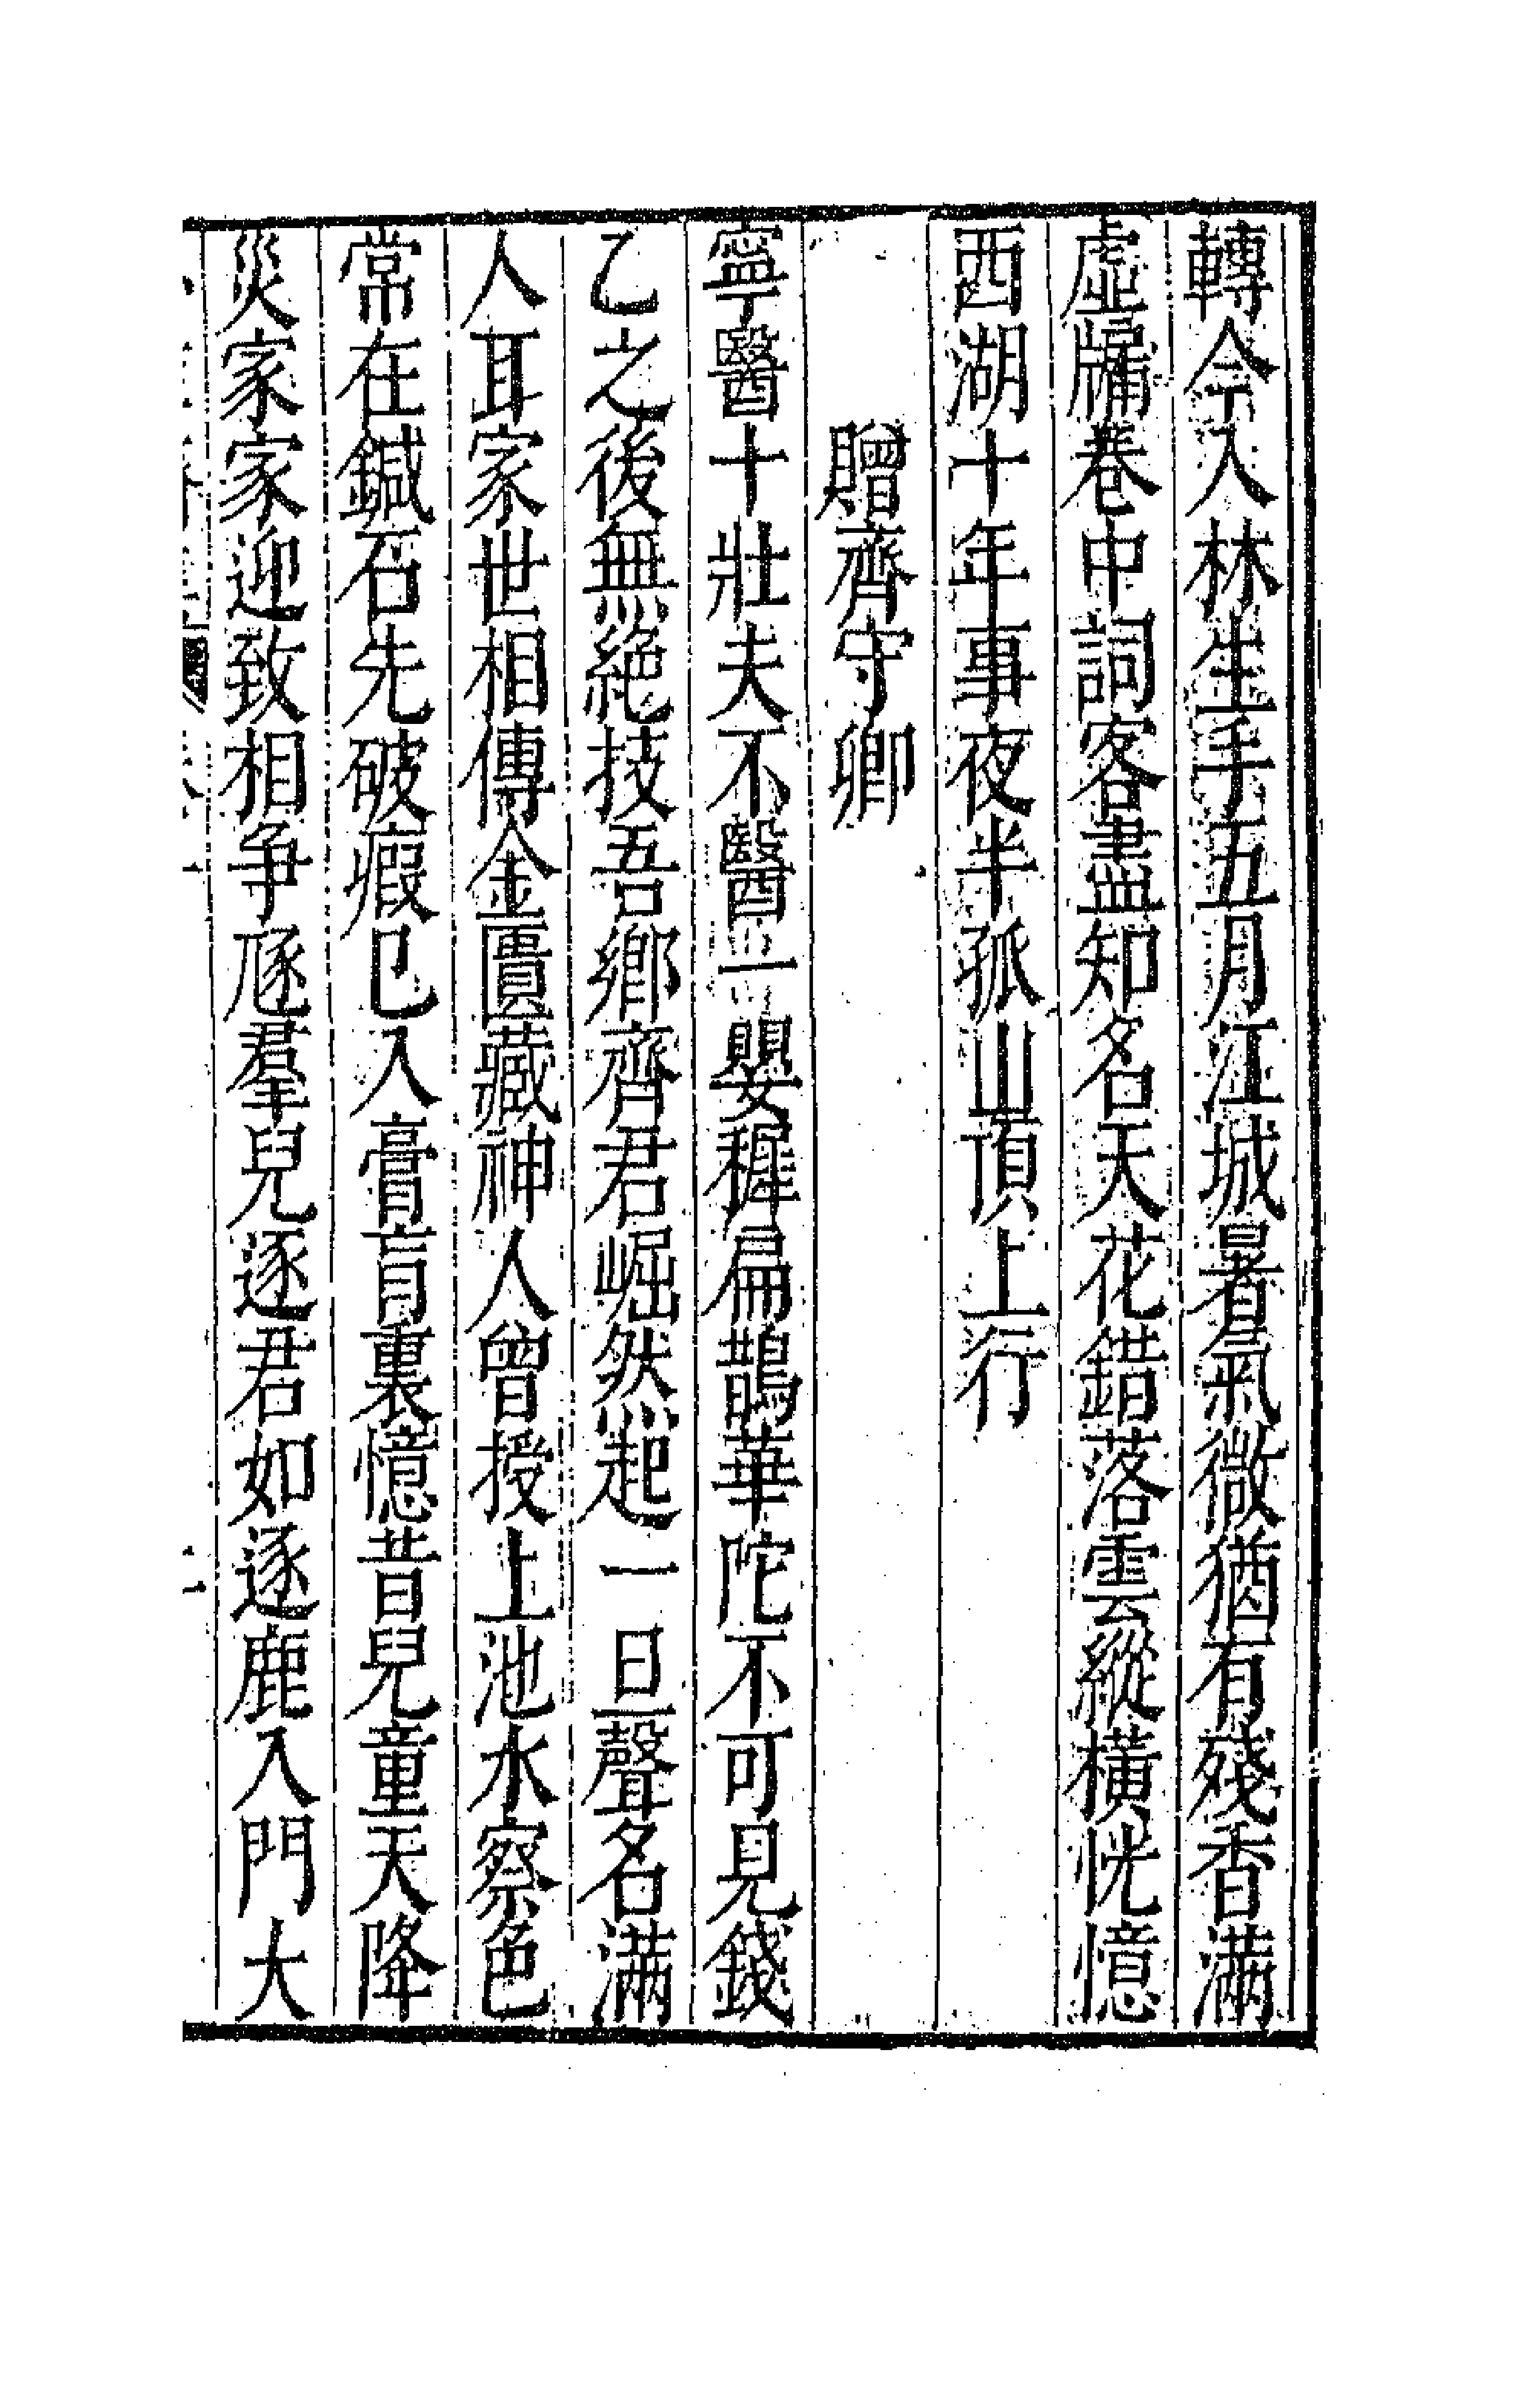 轉令入林生手五月江城暑氣微猶有殘香滿
虛牖卷中詞客盡知名天花錯落雲縱橫恍憶
西湖十年事夜半孤山頂上行
贈齊守卿
寧醫十壯夫不醫一嬰稺扁鵲華陀不可見錢
乙之後無絶技吾鄉齊君崛然起一旦聲名滿
人耳家世相傳金匱藏神人曾授上池水察色
常在鍼石先破瘕已入膏肓裏憶昔兒童天降
災家家迎致相爭豗羣兒逐君如逐鹿入門大